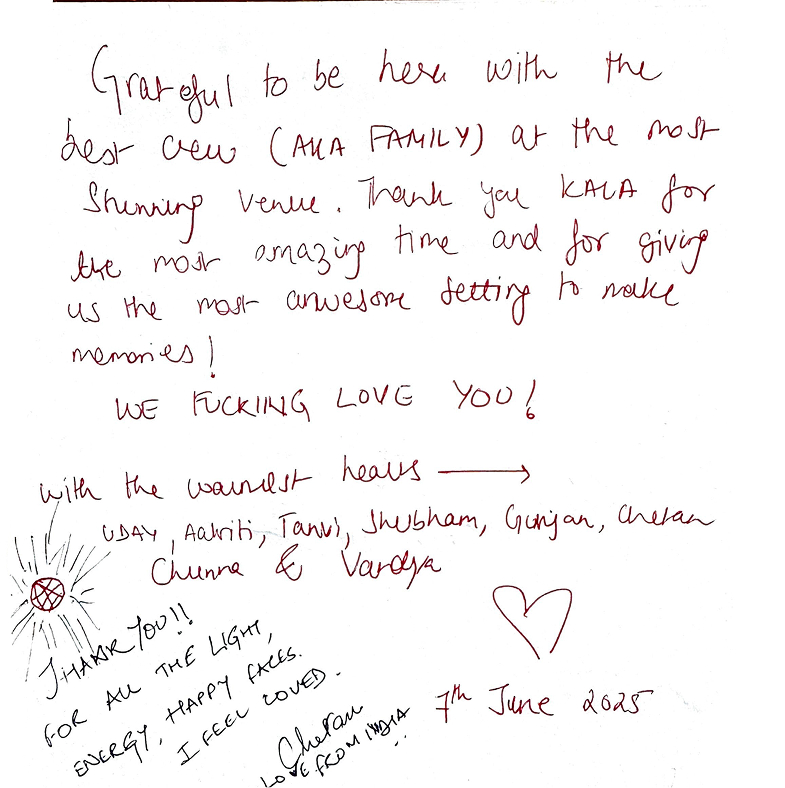 Grateful to be here with the
best crew (AKA FAMILY) at the most
Stunning venue. Thank you KALA for
the most amazing time and for giving
us the most anwesome setting to make
memories!
WE FUCKIING LOVE YOU!
with the warmest hearts →
UDAY, Aakriti, Tanvi, Shubham, Gunjan, Chetan
Chunna & Vardya
THANK YOU!!
FOR ALL THE LIGHT,
ENERGY, HAPPY FACES.
I FEEL LOVED.
Chetan
LOVE FROM INDIA
7th June 2025